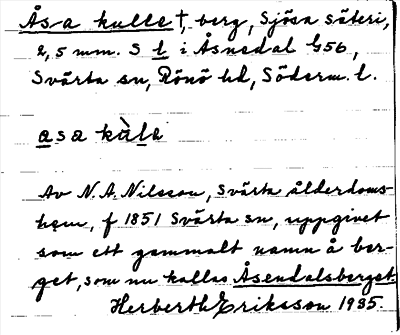 Åsa kulle †, berg, Sjösa säteri,
2,5 mm. S l i Åsnedal G56,
Svärta sn, Rönö hd, Söderm. l.
asa kùlẹ
Av N. A. Nilsson, Svärta ålderdoms-
hem, f 1851 Svärta sn, uppgivet
som ett gammalt namn å ber-
get, som nu kallas Åsendalsberget.
Herberth Eriksson 1935.